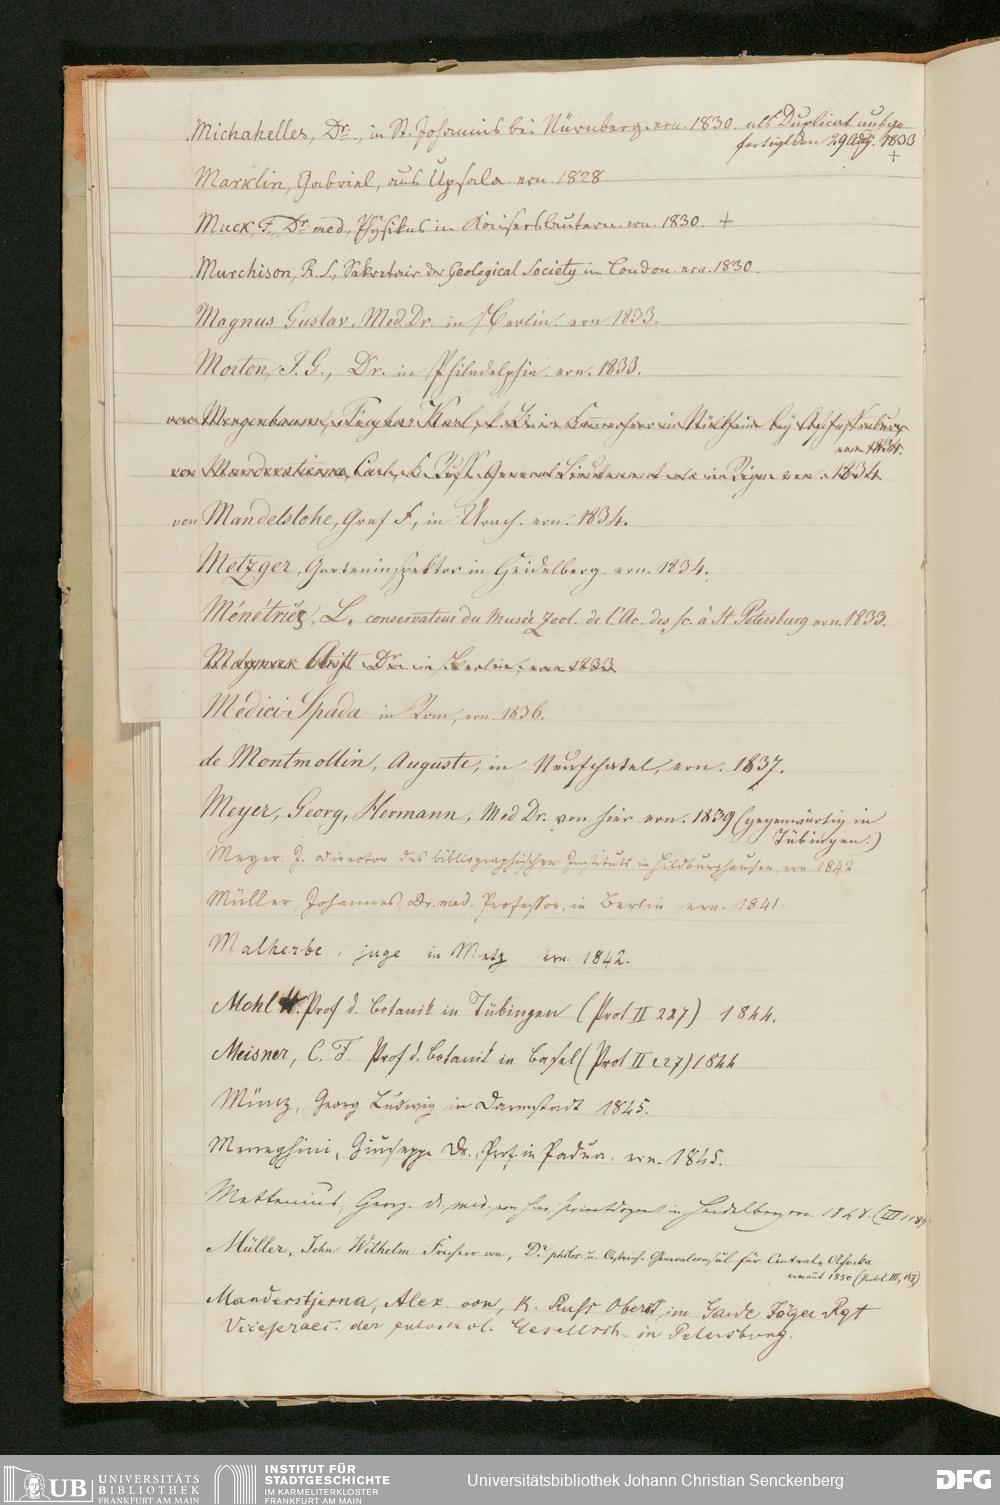 Michahelles, Dr., in St. Johannis bei Nürnberg. ern. 1830. als Duplicat ausge
fertigt den 29 Aug. 1833
+
Marklin, Gabriel, aus Upsala ern. 1828
Muck, F. Dr. med., Physikus in Kaiserslautern. ern. 1830. +
Murchison, R. I., Sekretair der Geological Society in London. ern. 1830.
Magnus Gustav. Med. Dr. in Berlin. ern 1833.
Morton, S. G., Dr. in Philadelphia. ern. 1833.
von Mergenbaum, Karl, bey Aschaffenburg
ern 1834.
von Manderstierna, Carl, K. Russ. General Lieutenant in Riga ern. 1834
von Mandelslohe, Graf F, in Urach. ern. 1834.
Metzger, Garteninspektor in Heidelberg. ern. 1834.
Ménétriés, L. conservateur du Musée Zool. de l'Ac. des sc. à St Petersburg ern. 1833.
Dr. in Berlin, ern 1833
Medici-Spada in Rom, ern. 1836.
de Montmollin, Auguste, in Neufchatel, ern. 1837.
Meyer, Georg, Hermann, Med Dr. von hier ern. 1839 (gegenwärtig in
Tübingen.)
Meyer J. Director des bibliographischen Instituts in Hildburghausen, ern 1842
Müller, Johannes, Dr. med. Professor, in Berlin ern. 1841.
Malherbe, juge in Metz ern. 1842.
Mohl H. Prof d. Botanik in Tübingen (Prot II 227) 1844.
Meisner, C. F. Prof d. Botanik in Basel (Prot II 227) 1844
Münz, Georg Ludwig in Darmstadt 1845.
Meneghini, Giuseppe Dr., Prof. in Padua. ern. 1845.
Mettenius, Georg. dr. med. von hier, Privatdozent in Heidelberg ern. 1848. (III
Müller, John Wilhelm Freiherr von, Dr. philos u. Oestreich. Generalconsul für Central-Africka
ernant 1850 (Protol. III, 187)
Manderstjerna, Alex. von, K. Russ Oberst im Garde Jäger Rgt
Vicepraes. der entomol. Gesellsch. in Petersburg.
UB UNIVERSITÄTS
BIBLIOTHEK
FRANKFURT AM MAIN
INSTITUT FÜR
STADTGESCHICHTE
IM KARMELITERKLOSTER
FRANKFURT AM MAIN
Universitätsbibliothek Johann Christian Senckenberg
DFG